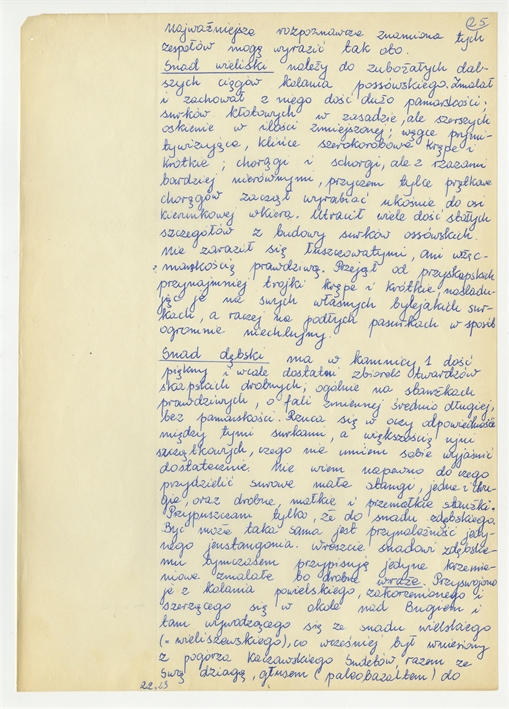 25
najważniejsze rozpoznawcze znamiona tych
zespołów mogę wyrazić tak oto.
Snad wieliski należy do zubożałych dal-
szych ciągów kolania possówskiego. Zmalał
i zachował z niego dość dużo pamiarskości;
surków kłobowych w zasadzie, ale szerszych
oskienie w ilości zmniejszonej; węgce prymi-
tywizujące, klińce szerokorobowe krępe i
krótkie; chorągi i schorgi, ale z rzazami
bardziej nierównymi, przyczem tylce przełkowe
chorągów zaczął wyrabiać ukośnie do osi
kierunkowej wkiera. Utracił wiele dość stałych
szczegółów z budowy surków ossówskich.
Nie zaraził się tłuszczowatymi, ani więc-
maskością prawdziwą. Przejął od przyskapskich
przynajmniej trojki krępe i krótkie, naśladu-
jąc je na swych własnych bylejakich sur-
kach, a raczej na podłych pasurkach w sposób
ogromnie niechlujny.
Snad dębski ma w Kamnicy 1 dość
piękny i wcale dostatni zbiorek otwardzów
skapskich drobnych; ogólnie na stawkach
prawdziwych, o fali zmiennej średnio długiej,
bez pamiarskości. Rzuca się w oczy odpowiedniość
między tymi surkami, a większością ryni
szczątkowych, czego nie umiem sobie wyjaśnić
dostatecznie. Nie wiem napewno do czego
przydzielić surowe małe stangi, jedne i dru-
gie, oraz drobne, małkie i przemałkie staużki.
Przypuszczam tylko, że do snadu zdębskiego.
Być może taka sama jest przynależność jedy-
nego jenstangonia. Wreszcie snadowi zdębskie-
mu tymczasem przypisuję jedyne krzemie-
niowe zmalałe bo drobne wraże. Przyswojono
je z kolania powielskiego, zakorzenionego i
szerzącego się w okole nad Bugiem i
tam wywodzącego się ze snadu wielskiego
(= wieliszewskiego), co wcześniej był wniesiony
z pogórza Kaczawskiego Sudetów, razem ze
swą dziagą, głusem (paleobazaltem) do
22.25